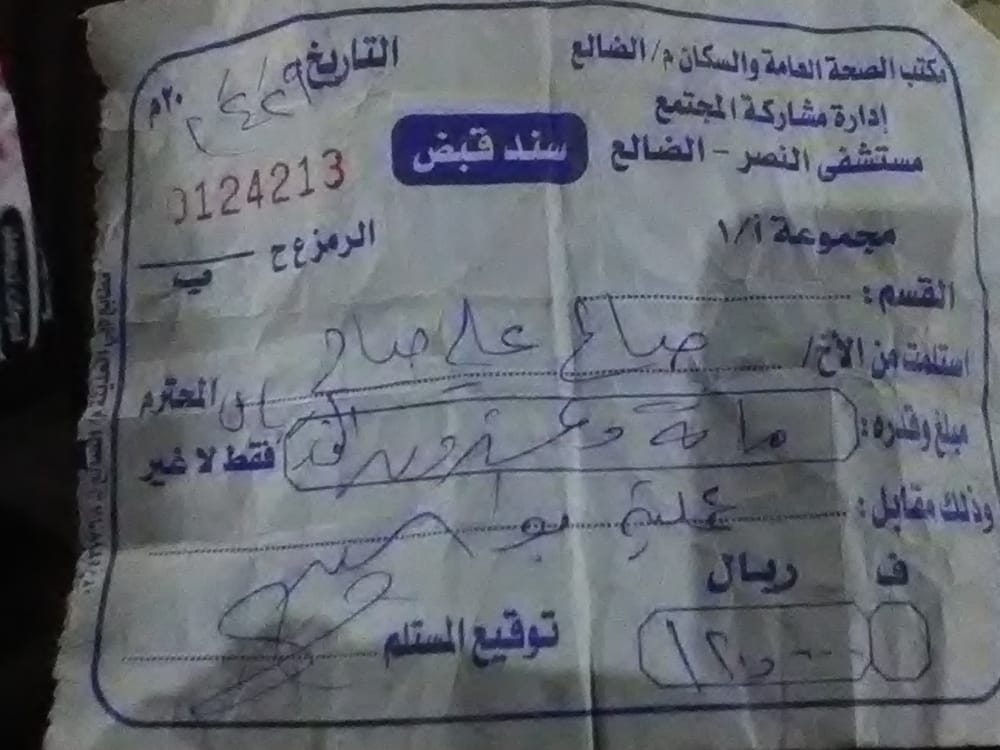 مكتب الصحة العامة والسكان م/ الضالع
إدارة مشاركة المجتمع
مستشفى النصر - الضالع
سند قبض
التاريخ / / ٢٠م
0124213
مجموعة أ/١
الرمز ع ح
القسم:
استلمت من الأخ/ صالح علي صالح المحترم
مبلغ وقدره: مائة وعشرون الف فقط لا غير
وذلك مقابل: عملية بواسير
ف ريال
توقيع المستلم